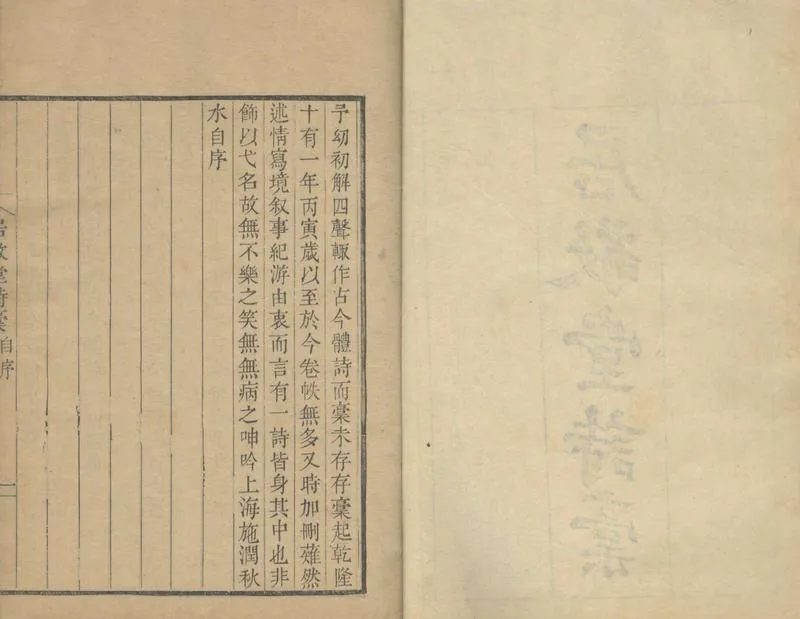 予幼初解四聲輒作古今體詩而稾未存存稾起乾隆
十有一年丙寅歲以至於今卷帙無多又時加刪薙然
述情寫境叙事紀游由衷而言有一詩皆身其中也非
飾以弋名故無不樂之笑無無病之呻吟上海施潤秋
水自序
堂詩稾自序
一